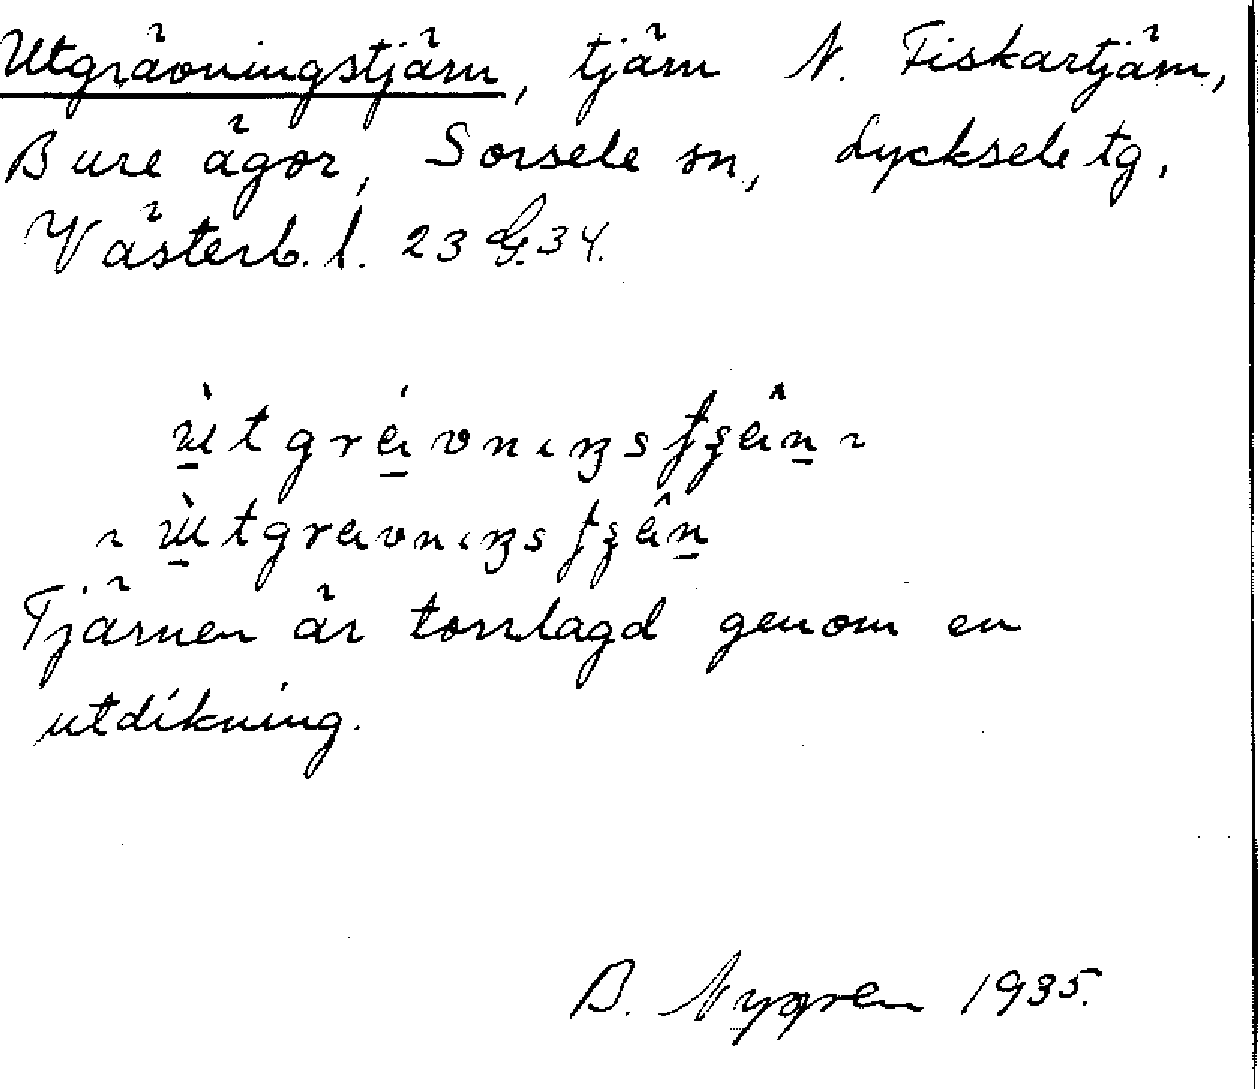 Utgrävningstjärn, tjärn N. Fiskartjärn,
Bure ägor, Sorsele sn, Lycksele tg,
Västerb. l. 23 G. 34.
Tjärnen är torrlagd genom en
utdikning.
B. Nygren 1935.